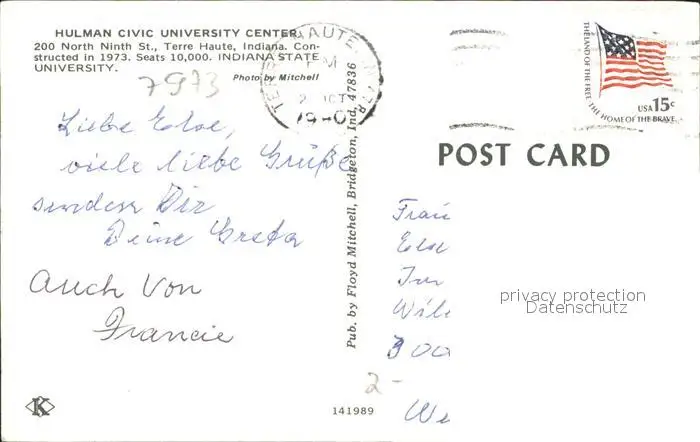 HULMAN CIVIC UNIVERSITY CENTER
200 North Ninth St., Terre Haute, Indiana. Con-
structed in 1973. Seats 10,000. INDIANA STATE
UNIVERSITY.
Photo by Mitchell
7973
Liebe Else,
viele liebe Grüße
senden Dir
Deine Greta
Auch Von
Francie
K
Pub. by Floyd Mitchell, Bridgeton, Ind, 47836
TERRE HAUTE, IN
PM
2 OCT
1980
THE LAND OF THE FREE THE HOME OF THE BRAVE
USA 15c
POST CARD
Frau
Else
privacy protection
Datenschutz
2-
We
141989